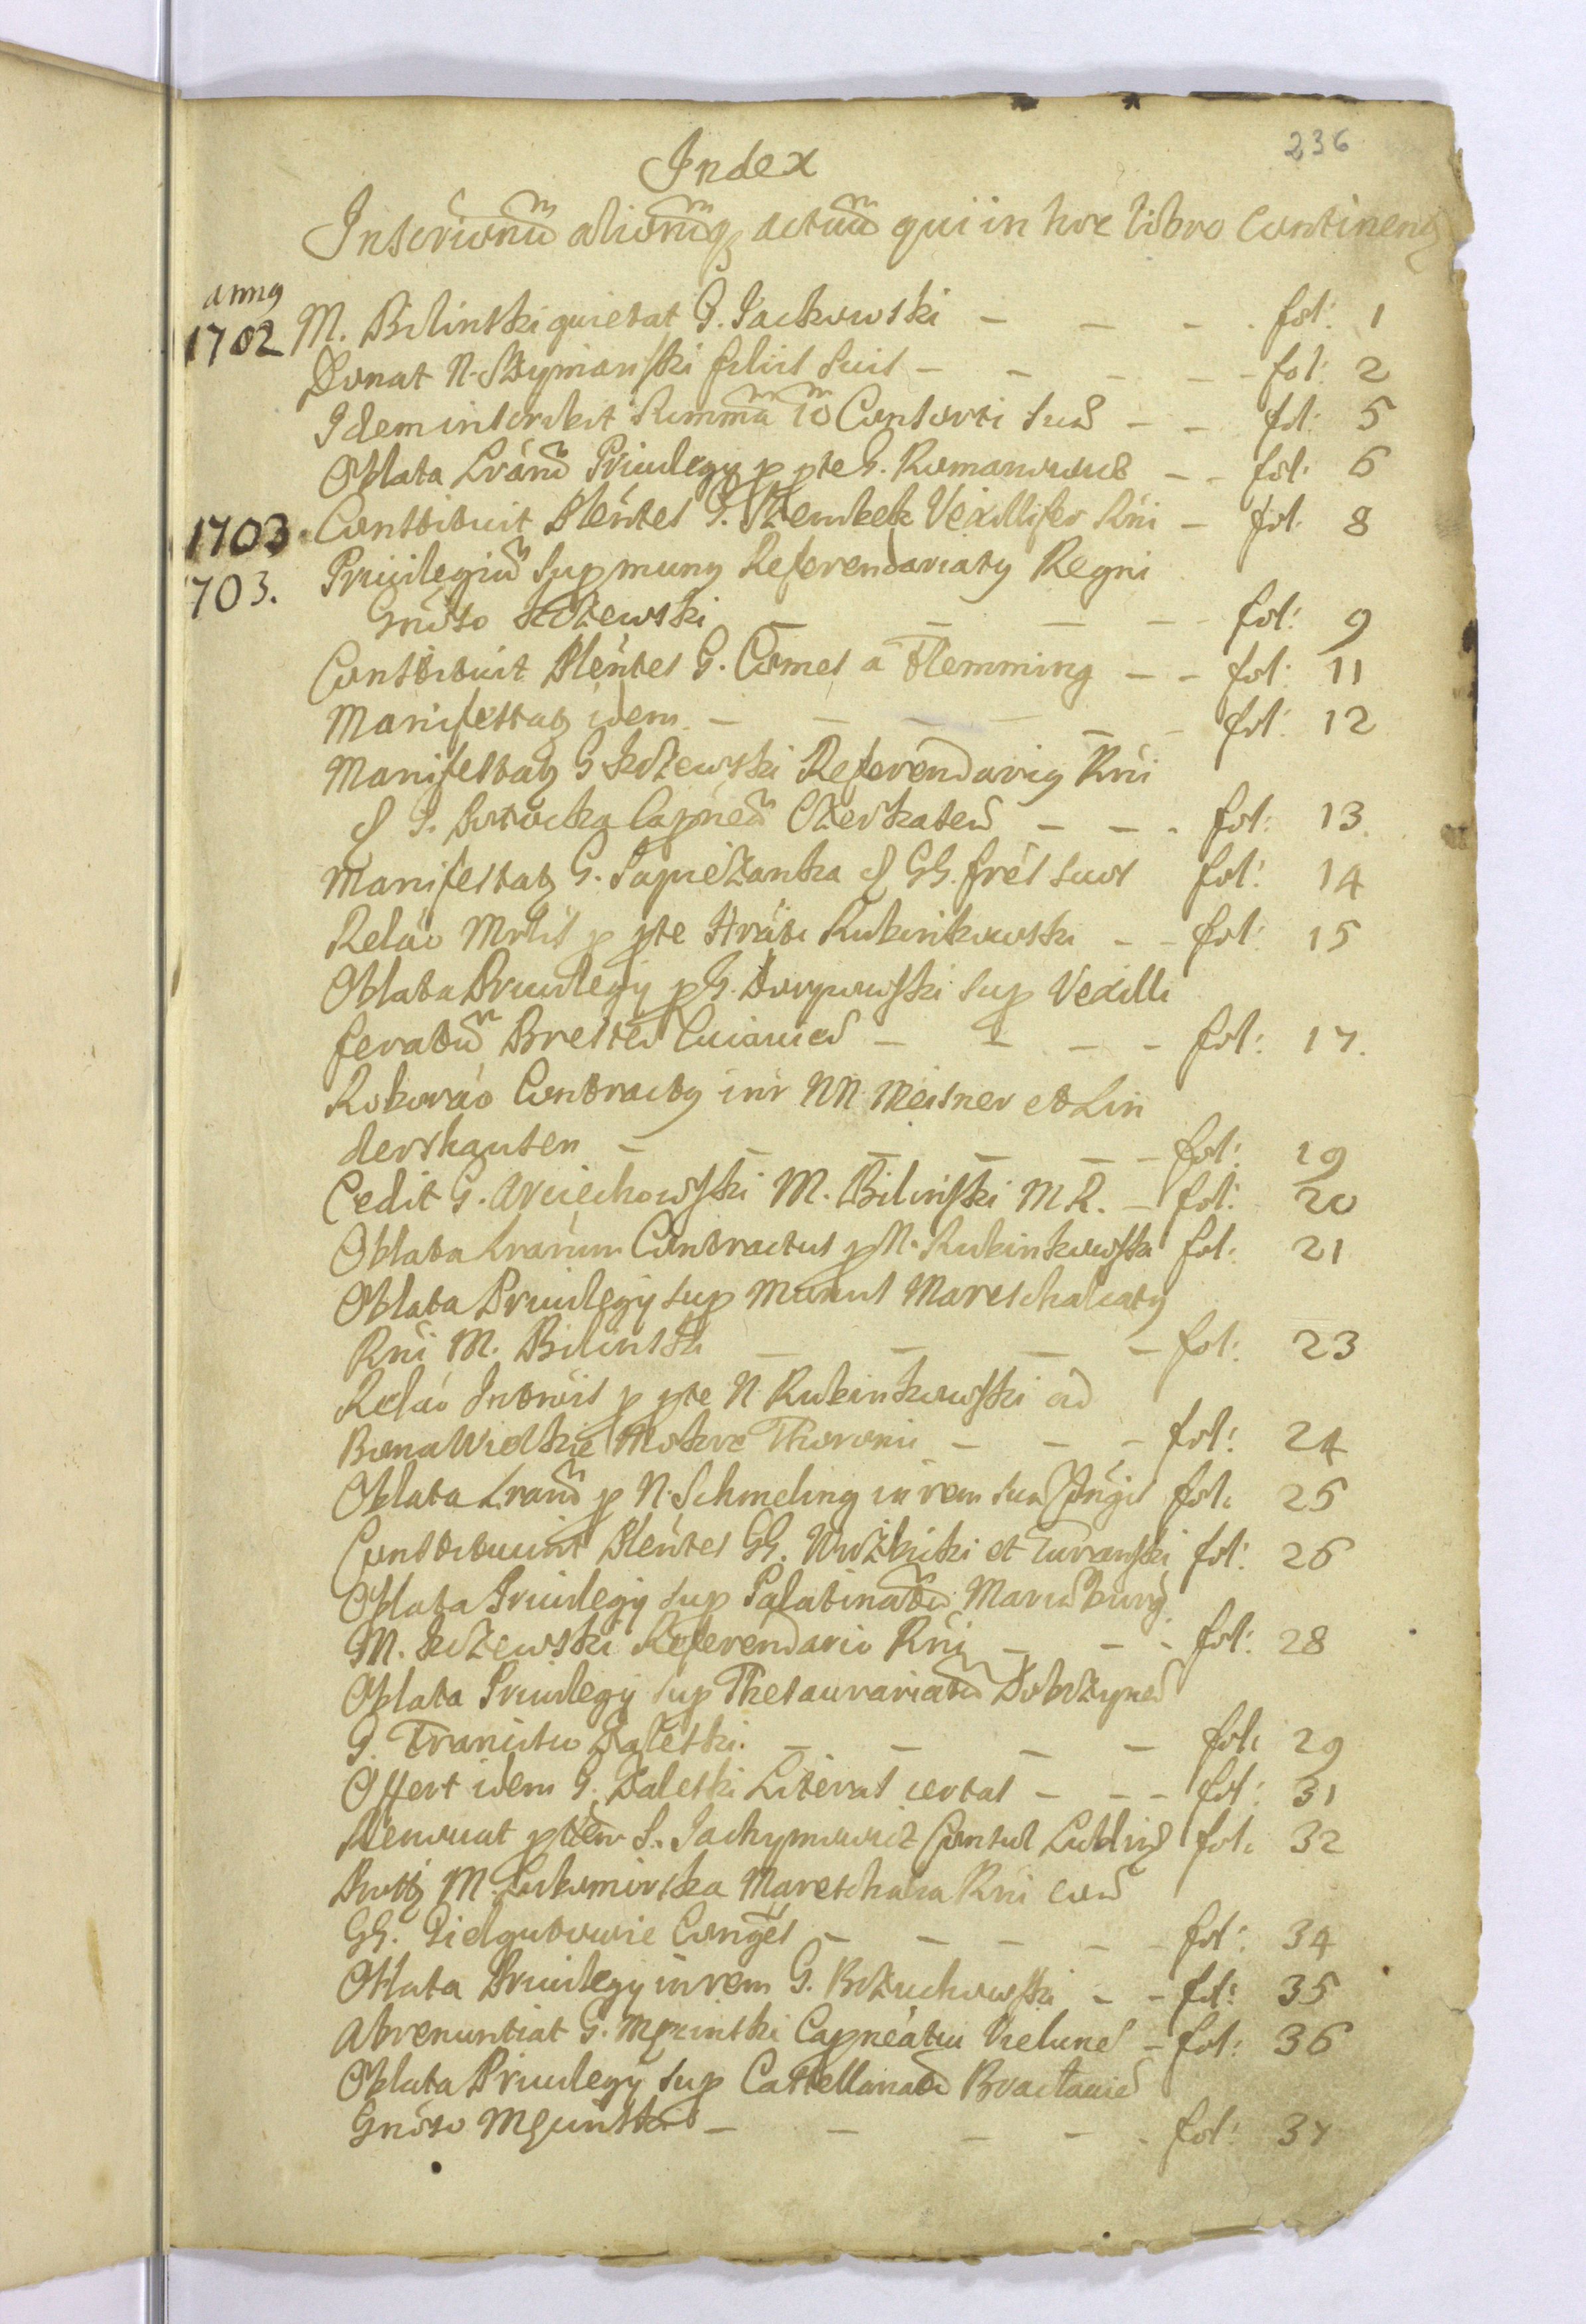 236
Index
Inscrionũ aliorũq actuũ qui in hoc libro continent
anno
1702 M. Bilinski quietat G. Jackowski - - - fol: 1
Donat N. Szymanski filiis suis - - - - fol: 2
Idem inscribit Summã Consorti suæ - - fol: 5
Oblata Lrárũ Priuilegy p pte G. Romanowicz - - fol: 6
1703. Constituit Plentes G. Szembek Vexillifer Rni - fol: 8
703. Priuilegiũ sup munus Referendariatus Regni
Gnoso Kczewski - - - - fol: 9
Constituit Plentes G. Comes a Flemming - - fol: 11
Manifestat idem - - - - - fol: 12
Manifestat G Kczewski Referendarius Rni
G. Potocka Capnea Czerkasien - - - fol: 13.
Manifestat G. Sapiezanka GG. fres suos fol: 14
Reláo Mrlis p pte Hráti Rubinkowski - - fol: 15
Oblata Priuilegij p G. Dorpowski sup Vexilli
feratũ Bresten Cuiauien - - - - fol: 17.
Roboráo Contractus inr NN Meisner et Lin
dershausen - - - - - - fol: 19
Cedit G. Woiechowski M. Bilinski M R. - fol: 20
Oblata Lrarum Contractus p N. Rubinkowski fol: 21
Oblata Priuilegij sup munus Mareschalcatus
Rni M. Bilinski - - - - fol: 23
Reláo Intrõis p pte N Rubinkowski ad
Bona Wielkie Mokre Thoronii - - - fol: 24
Oblata Lrarũ p N. Schmeling in rem suæ Cõngis fol: 25
Constituunt Plentes GG. Wozbicki et Turowski fol: 26
Oblata Priuilegij sup Palatinatũ Mariæburg
M. Kczewski Referendario Rni - - - fol: 28
Oblata Priuilegij sup Thesaurariatũ Dobrzynen
G. Francisco Zaleski. - - - - fol: 29
Offert idem G. Zaleski Literas certas - - - fol: 31
Reuocat pttem S. Jachymowicz Consul Lublin fol: 32
Prottr M. Lubomirska Mareschalca Rni con
GG. Gielgutowie Conges - - - - - fol: 34
Oblata Priuilegij in rem G. Bozuchowski - - fol: 35
Abrenuntiat G. Mecinski Capneatui Vielunen - fol: 36
Oblata Priuilegij sup Castellanatũ Braclauien
Gnoso Mecinski - - - - - fol: 37